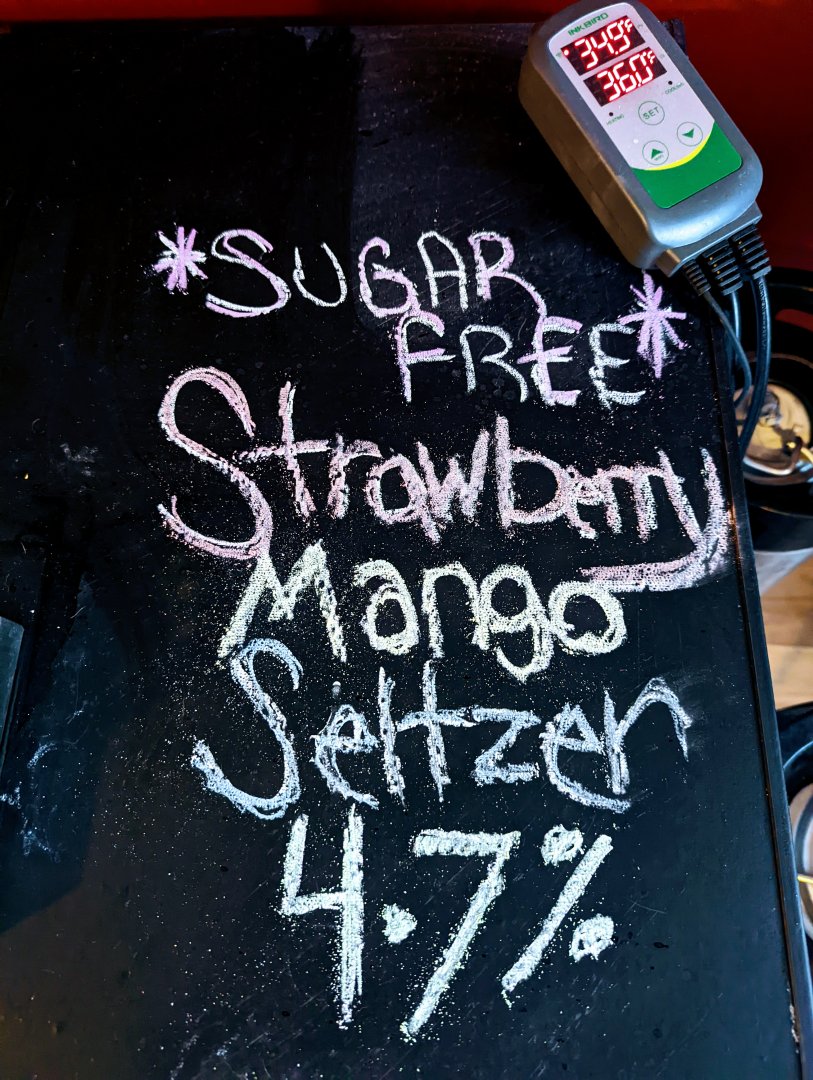 INKBIRD
34.9°F
36.0°F
COOLING
HEATING
SET
*SUGAR
FREE*
Strawberry
Mango
Seltzer
4.7%